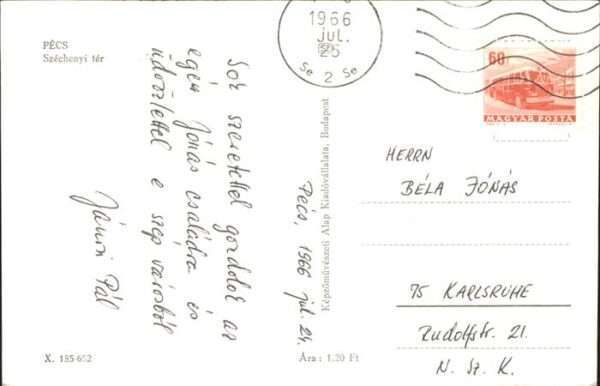 PÉCS
Széchenyi tér
Sok szeretettel gondolok az
egész Jónás családra és
üdvözlettel e szép városból
Jánosi Pál
Pécs, 1966 júl. 24.
X. 185-662
Képzőművészeti Alap Kiadóvállalata, Budapest
Ára: 1.20 Ft
1966
JUL.
25
Se 2 Se
60
MAGYAR POSTA
HERRN
BÉLA JÓNÁS
75 KARLSRUHE
Rudolfstr. 21.
N. Sz. K.